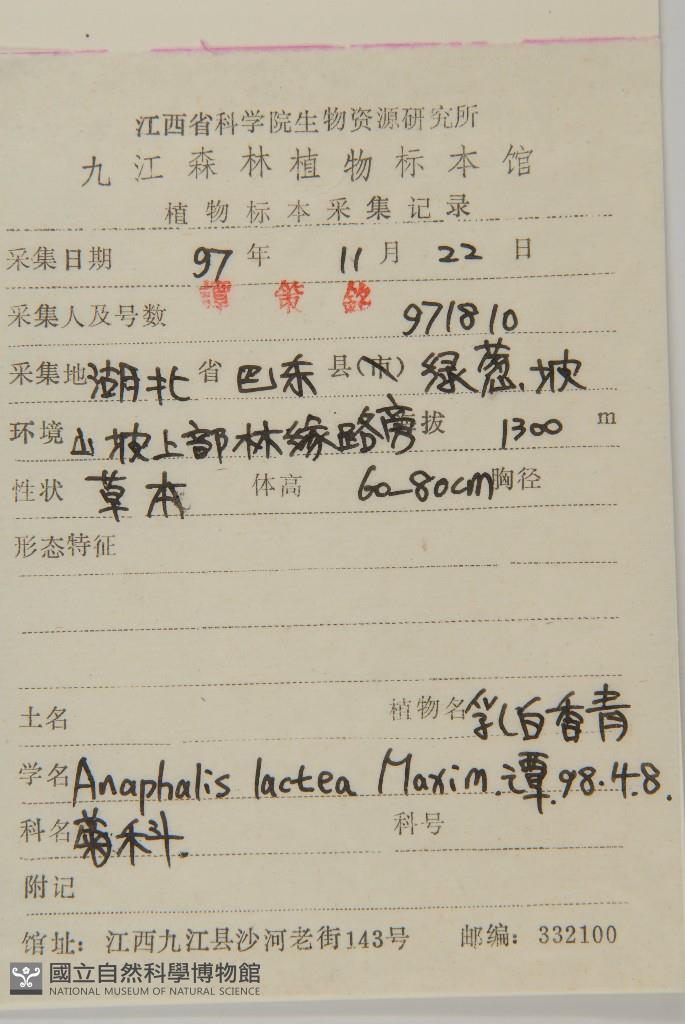 江西省科学院生物资源研究所
九江森林植物标本馆
植物标本采集记录
采集日期 97 年 11 月 22 日
譚 策 銘
采集人及号数 971810
采集地 湖北 省 巴东 县(市) 绿葱坡
环境 山坡上部林缘路旁 拔 1300 m
性状 草本 体高 60-80cm 胸径
形态特征
土名 植物名 乳白香青
学名 Anaphalis lactea Maxim. 谭.98.4.8.
科名 菊科. 科号
附记
馆址：江西九江县沙河老街143号 邮编：332100
國立自然科學博物館
NATIONAL MUSEUM OF NATURAL SCIENCE